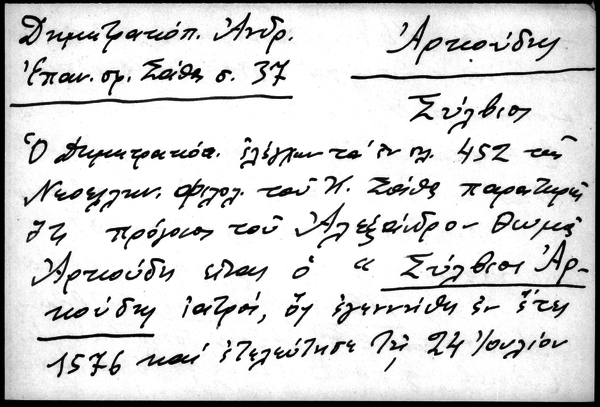 Δημητρακόπ. Ἀνδρ.
Ἐπαν. σφ. Σάθα σ. 37
Ἀρκούδης
Σύλβιος
Ὁ Δημητρακόπ. ἐλέγχων τὰ ἐν σελ. 452 τῆς
Νεοελλην. Φιλολ. τοῦ Κ. Σάθα παρατηρεῖ
ὅτι πρόγονος τοῦ Ἀλεξάνδρου Θωμᾶ
Ἀρκούδη εἶναι ὁ “ Σύλβιος Ἀρ-
κούδης ἰατρός, ὃς ἐγεννήθη ἐν ἔτει
1576 καὶ ἐτελεύτησε τῇ 24 Ἰουλίου